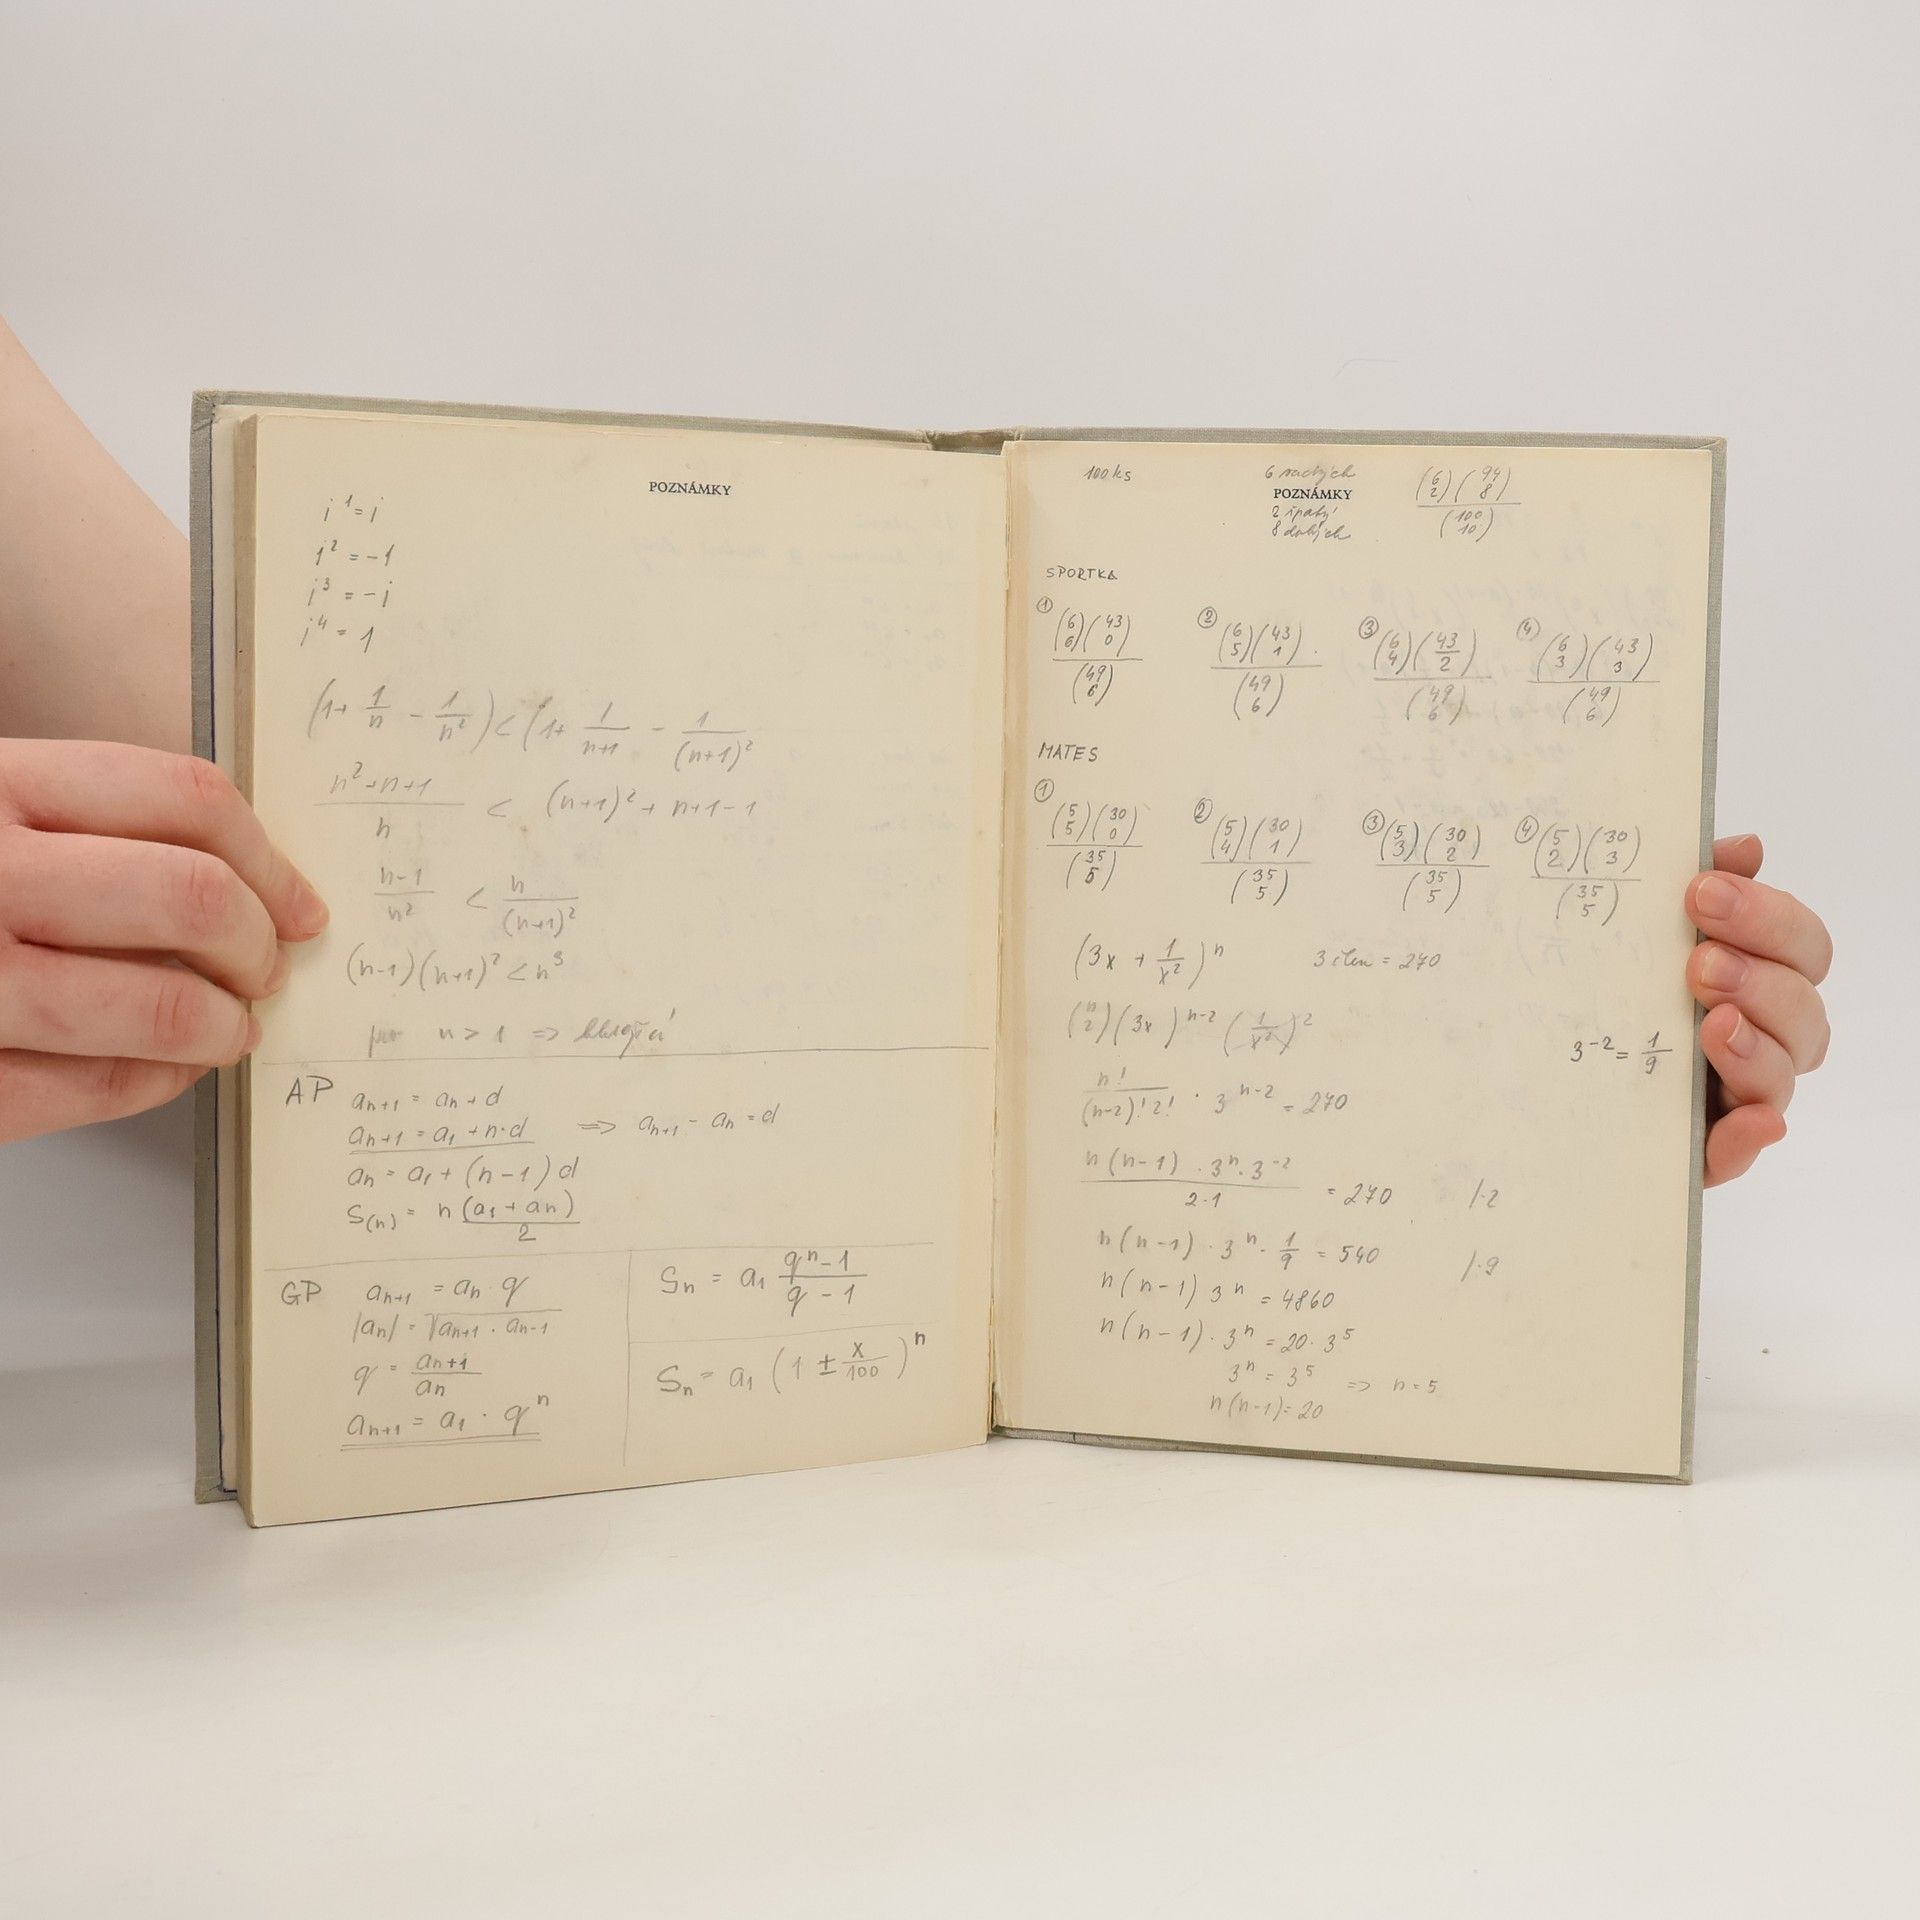 POZNÁMKY
i^1 = i
i^2 = -1
i^3 = -i
i^4 = 1
(1 + 1/n - 1/n^2) < (1 + 1/(n+1) - 1/(n+1)^2
(n^2+n+1)/n < (n+1)^2 + n+1-1
(n-1)/n^2 < n/(n+1)^2
(n-1)(n+1)^2 < n^3
pro n > 1 =>
AP a_{n+1} = a_n + d
a_{n+1} = a_1 + n·d => a_{n+1} - a_n = d
a_n = a_1 + (n-1)d
S_{(n)} = n (a_1 + a_n)/2
GP a_{n+1} = a_n · q
|a_n| = √(a_{n+1} · a_{n-1})
q = a_{n+1}/a_n
a_{n+1} = a_1 · q^n
S_n = a_1 (q^n - 1)/(q - 1)
S_n = a_1 (1 ± x/100)^n
100 ks
6
POZNÁMKY
2
8
(6 2)(94 8)/(100 10)
SPORTKA
① (6 6)(43 0)/(49 6) ② (6 5)(43 1)/(49 6) ③ (6 4)(43/2)/(49 6) ④ (6 3)(43 3)/(49 6)
MATES
① (5 5)(30 0)/(35 5) ② (5 4)(30 1)/(35 5) ③ (5 3)(30 2)/(35 5) ④ (5 2)(30 3)/(35 5)
(3x + 1/x^2)^n 3 člen = 270
(n 2)(3x)^{n-2} (1/x^2)^2
3^{-2} = 1/9
n!/((n-2)!2!) · 3^{n-2} = 270
(n(n-1) · 3^n · 3^{-2})/(2·1) = 270 /·2
n(n-1) · 3^n · 1/9 = 540 /·9
n(n-1) 3^n = 4860
n(n-1) · 3^n = 20 · 3^5
3^n = 3^5 => n = 5
n(n-1) = 20